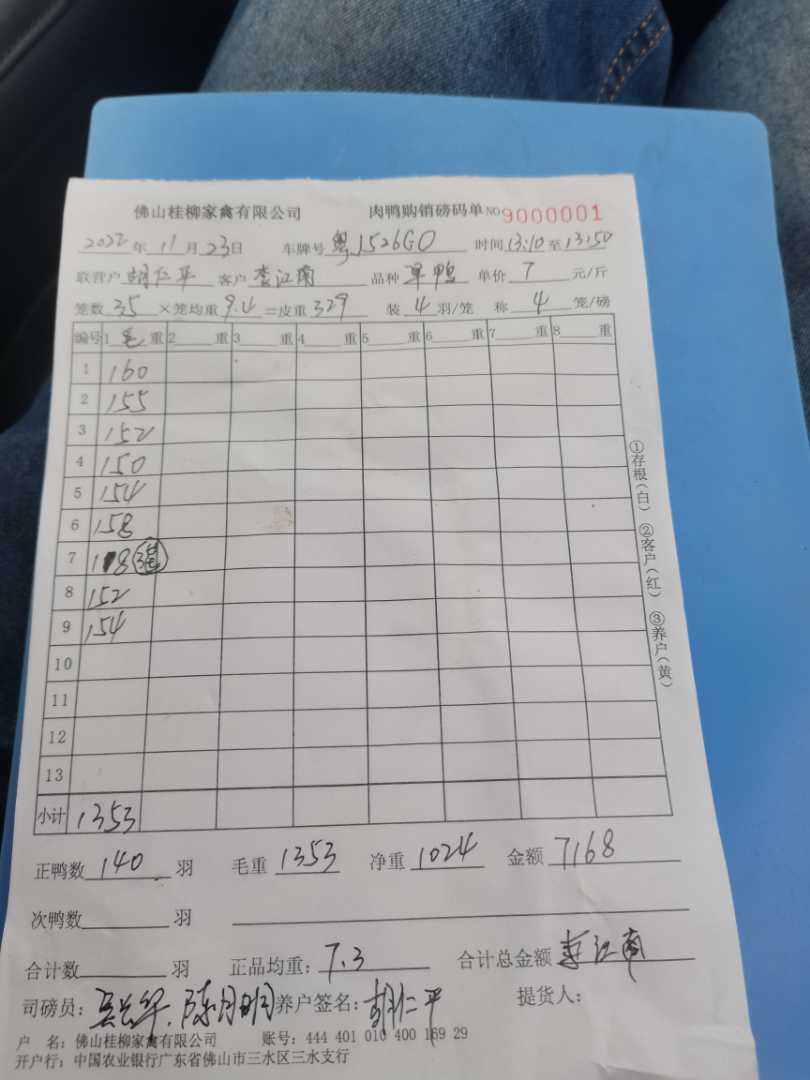 佛山桂柳家禽有限公司 肉鸭购销磅码单 NO 9000001
2022年11月23日 车牌号 粤1526GO 时间 13:10至13:50
联营户 胡仁平 客户 李江南 品种 单鸭 单价 7 元/斤
笼数 35 ×笼均重 9.4 =皮重 329 装 4 羽/笼 称 4 笼/磅
编号 1 毛 重 2 重 3 重 4 重 5 重 6 重 7 重 8 重
1 160
2 155
3 152
4 150
5 154
6 158
7 118
8 152
9 154
10
11
12
13
小计 1353
正鸭数 140 羽 毛重 1353 净重 1024 金额 7168
次鸭数 羽
合计数 羽 正品均重: 7.3 合计总金额 李江南
司磅员: 陈月明 养户签名: 胡仁平 提货人:
户 名: 佛山桂柳家禽有限公司 账号: 444 401 010 400 169 29
开户行: 中国农业银行广东省佛山市三水区三水支行
①存根(白) ②客户(红) ③养户(黄)